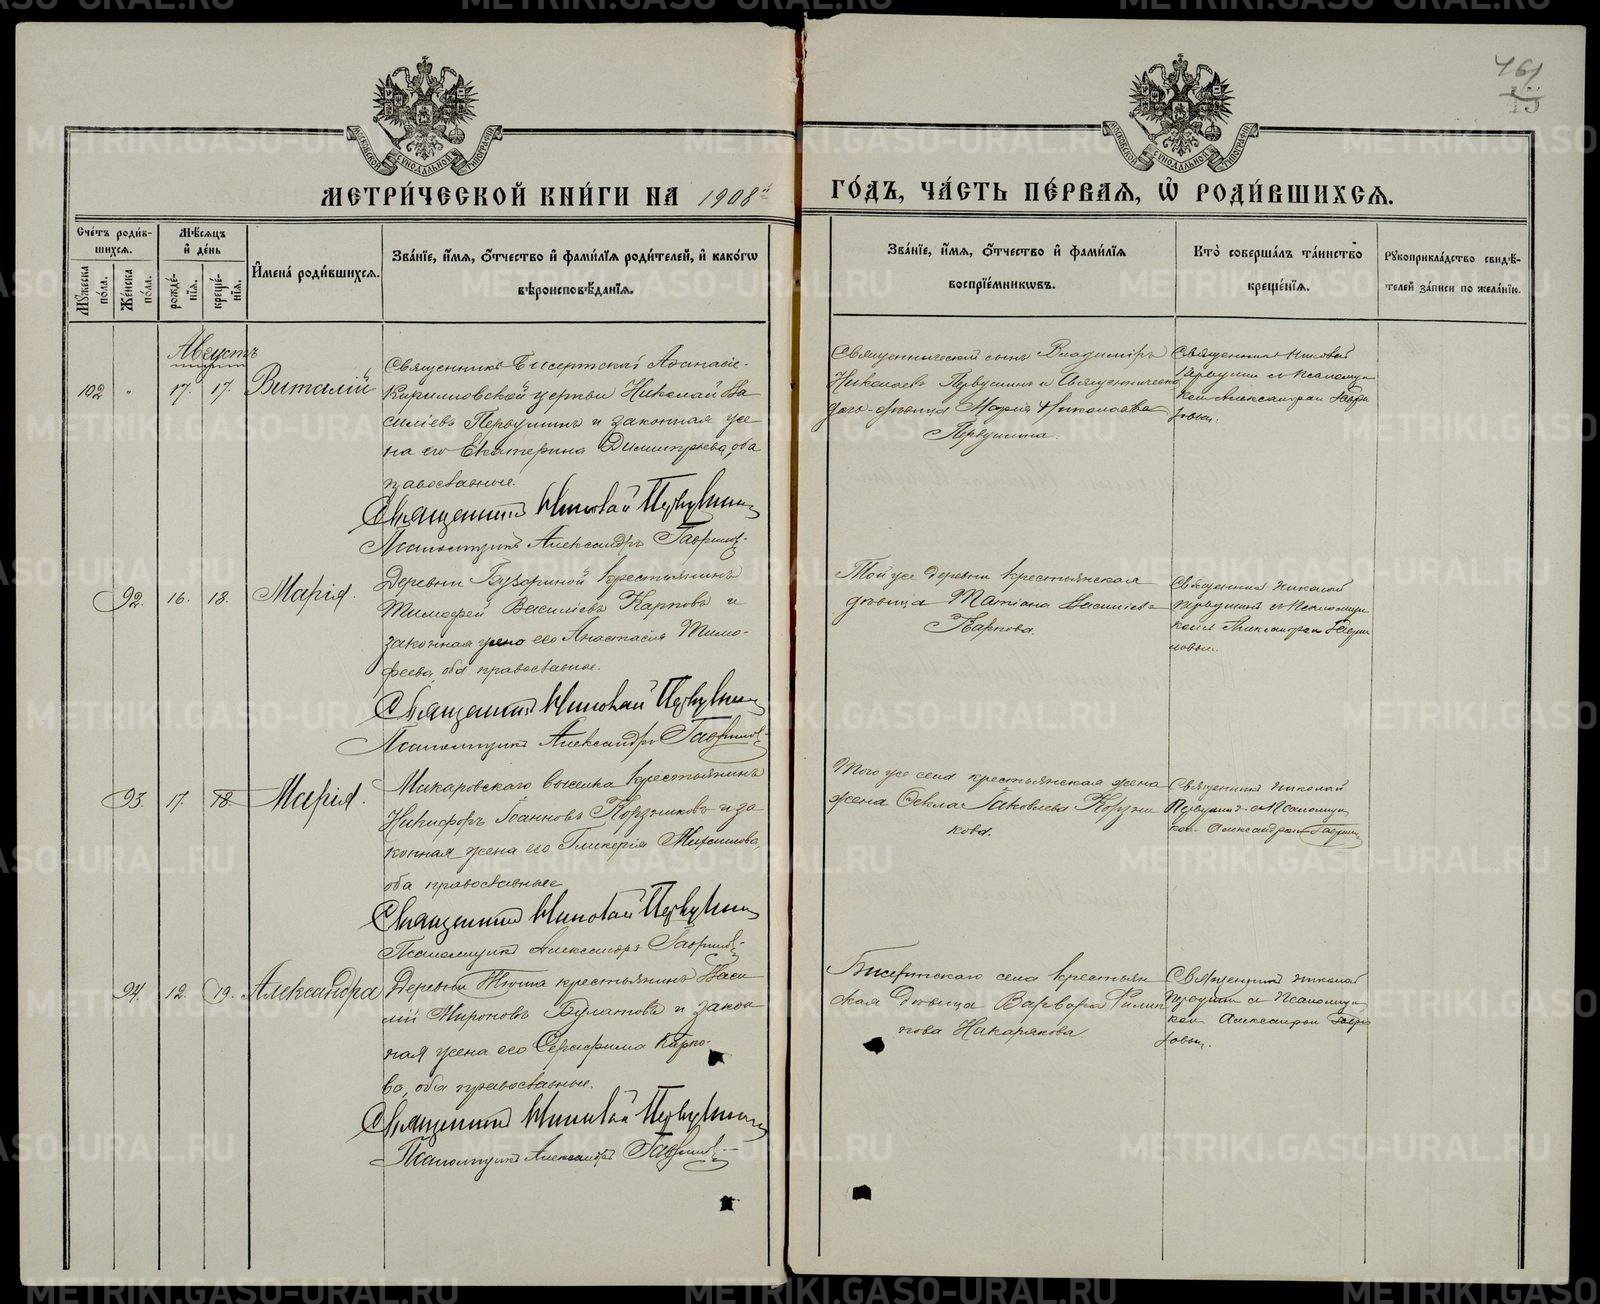 461
15
МОСКОВСКОЙ СѴНОДАЛЬНОЙ ТИПОГРАФІИ
МОСКОВСКОЙ СѴНОДАЛЬНОЙ ТИПОГРАФІИ
МЕТРИ́ЧЕСКОЙ КНИ́ГИ НА 1908й ГО́ДЪ, ЧА́СТЬ ПЕ́РВАЯ, Ѡ҆ РОДИ́ВШИХСЯ.
Сче́тъ роди́вшихся.
Му́жеска по́ла.
Же́нска по́ла.
Мѣ́сяцъ и҆ де́нь
рожде́нїѧ.
креще́нїѧ.
И҆мена̀ роди́вшихсѧ.
Зва́нїе, и҆́мѧ, ѻ҆́тчество и҆ фами́лїѧ роди́телей, и҆ како́гѡ
вѣроисповѣ́данїѧ.
Зва́нїе, и҆́мѧ, ѻ҆́тчество и҆ фами́лїѧ
воспрїе́мникѡвъ.
Кто̀ соверша́лъ та́инство
креще́нїѧ.
Рꙋкоприкла́дство свидѣ́-
телей за́писи по жела́нїю.
Августъ
102 " 17. 17. Виталий
Священникъ Бисертской Аѳанасіе-
Кирилловской церкви Николай Ва
силіевъ Первушинъ и законная же
на его Екатерина Димитріева, оба
православные.
Священникъ Николай Первушин
Псаломщикъ Александръ Гаврилов
Священнический сынъ Владиміръ
Николаевъ Первушинъ и священническо
дочь-девица Марія Николаева
Первушина.
Священникъ Николай
Первушин съ псаломщи
комъ Александром Гаври
ловым.
92. 16. 18. Марія.
Деревни крестьянинъ
Тимофей Василіевъ Карповъ и
законная жена его Анастасія Тимо-
феева, оба православные.
Священникъ Николай Первушин
Псаломщикъ Александръ Гаврилов
Той же деревни крестьянская
девица Татіана Василіева
Карпова.
Священникъ Николай
Первушинъ съ псаломщи
комъ Александром Гаври
ловым.
93. 17. 18. Марія.
Макаровскаго выселка крестьянинъ
Никифоръ Іоанновъ Коржиковъ и за-
конная жена его Гликерія
оба православные
Священникъ Николай Первушин
Псаломщикъ Александръ Гаврилов
Того же села крестьянская жена
жена Ѳекла Іаковлева Коржи
кова.
Священникъ Николай
Первушин съ псаломщи
ком Александром Гаврил
94. 12. 19. Александра
Деревни крестьянинъ Васи
лій Мироновъ Булатовъ и закон-
ная жена его Серафима Карпо-
ва, оба православные.
Священникъ Николай Первушин
Псаломщикъ Александръ Гаврилов
Бисертскаго села крестьян
ская девица Варвара Филип
пова Накарякова.
Священникъ Николай
Первушин съ псаломщи
ком Александром Гаври
ловым.
METRIKI.GASO-URAL.RU